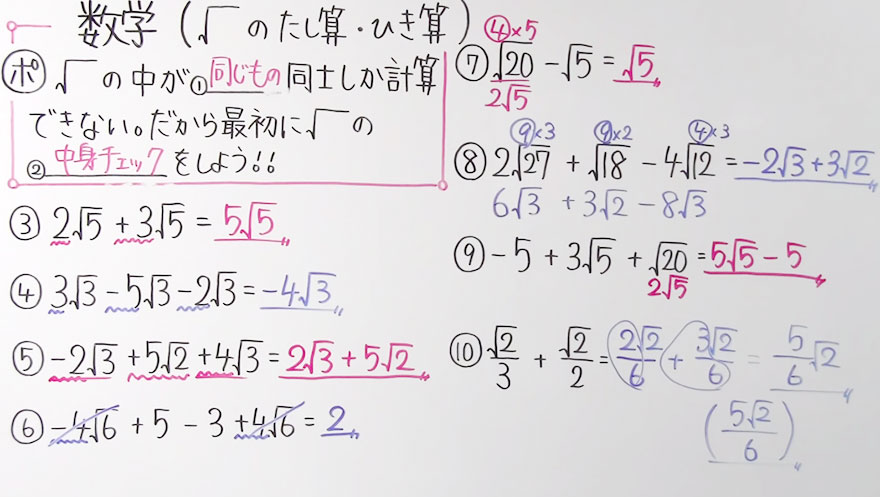 数学(√ のたし算・ひき算)
ポ √ の中が①同じもの同士しか計算
できない。だから最初に√ の
②中身チェックをしよう!!
③ 2√5 + 3√5 = 5√5
④ 3√3 - 5√3 - 2√3 = -4√3
⑤ -2√3 + 5√2 + 4√3 = 2√3 + 5√2
⑥ -4√6 + 5 - 3 + 4√6 = 2
④×5
⑦ √20 - √5 = √5
2√5
⑨×3 ⑨×2 ④×3
⑧ 2√27 + √18 - 4√12 = -2√3 + 3√2
6√3 + 3√2 - 8√3
⑨ -5 + 3√5 + √20 = 5√5 - 5
2√5
⑩ √2/3 + √2/2 = 2√2/6 + 3√2/6 = 5/6 √2
(5√2/6)